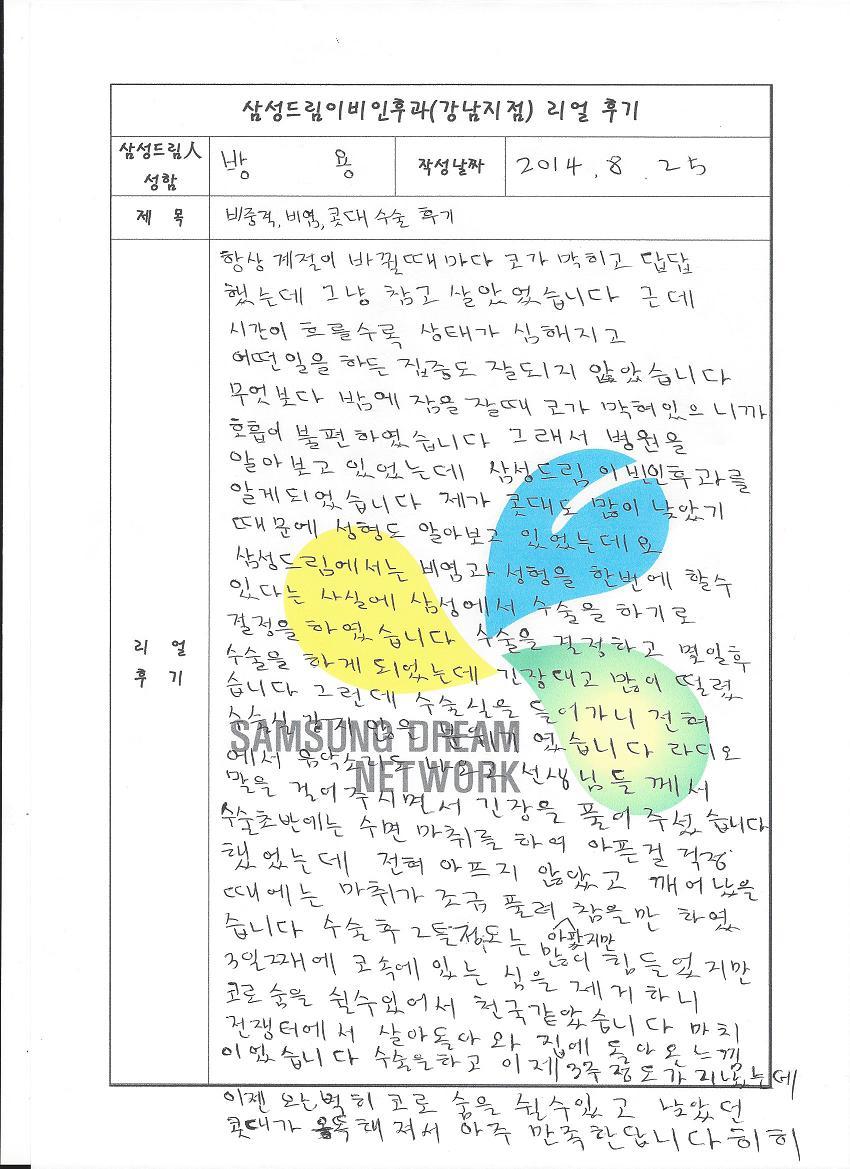 삼성드림이비인후과(강남지점) 리얼 후기
삼성드림人 성함
방 용
작성날짜
2014. 8. 25
제 목
비중격, 비염, 콧대 수술 후기
리 얼
후 기
항상 계절이 바뀔때마다 코가 막히고 답답
했는데 그냥 참고 살았었습니다 근데
시간이 흐를수록 상태가 심해지고
어떤일을 하든 집중도 잘되지 않았습니다
무엇보다 밤에 잠을 잘때 코가 막혀있으니까
호흡이 불편하였습니다 그래서 병원을
알아보고 있었는데 삼성드림 이빈인후과를
알게되었습니다 제가 콧대도 많이 낮았기
때문에 성형도 알아보고 있었는데요
삼성드림에서는 비염과 성형을 한번에 할수
있다는 사실에 삼성에서 수술을 하기로
결정을 하였습니다 수술을 결정하고 몇일후
수술을 하게 되었는데 긴장대고 많이 떨렸
습니다 그런데 수술실을 들어가니 전혀
수술실 같지 않은 분위기 였습니다 라디오
에서 음악소리도 나오고 선생님들 께서
말을 걸어주시면서 긴장을 풀어 주셨습니다
수술초반에는 수면 마취를 하여 아픈걸 걱정
했었는데 전혀 아프지 않았고 깨어났을
때에는 마취가 조금 풀려 참을만 하였
습니다 수술후 2틀정도는 아팠지만 많이 힘들었지만
3일째에 코속에 있는 심을 제거하니
코로 숨을 쉴수있어서 천국같았습니다 마치
전쟁터에서 살아돌아 와 집에 돌아온느낌
이었습니다 수술을하고 이제 3주정도가 지났는데
이젠 완벽히 코로 숨을 쉴수있고 낮았던
콧대가 해져서 아주 만족한답니다 히히
SAMSUNG DREAM
NETWORK